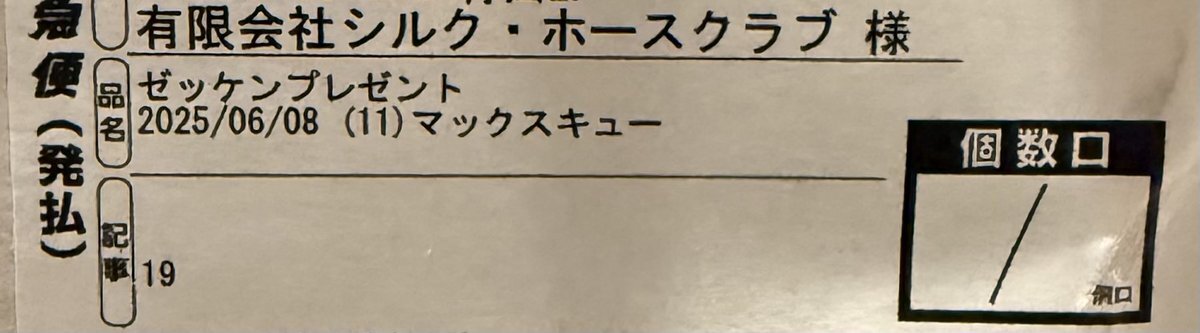 急便(発払)
有限会社シルク・ホースクラブ 様
品名
ゼッケンプレゼント
2025/06/08 (11)マックスキュー
個数口
/
個口
記事
19